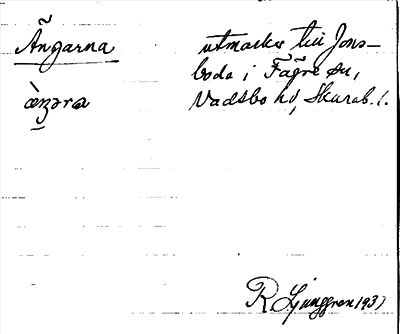 Ängarna
utmarker till Jons-
boda i Fägre sn,
Vadsbo hd, Skarab. l.
R Ljunggren 1937